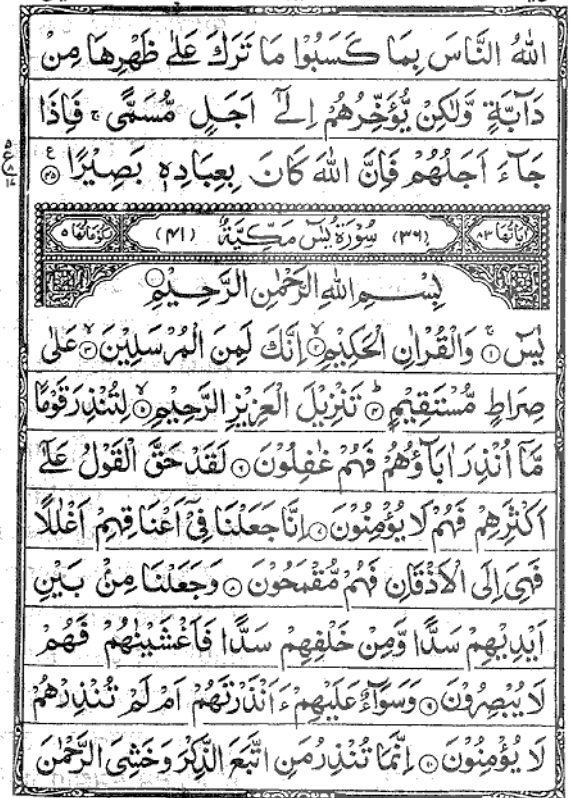 اللهُ النَّاسَ بِمَا كَسَبُوْا مَا تَرَكَ عَلٰى ظَهْرِهَا مِنْ
دَآبَّةٍ وَّلٰكِنْ يُّؤَخِّرُهُمْ اِلٰٓى اَجَلٍ مُّسَمًّى ۚ فَاِذَا
جَآءَ اَجَلُهُمْ فَاِنَّ اللهَ كَانَ بِعِبَادِهٖ بَصِيْرًا ۝۴۵
اٰيَاتُهَا ۸۳ (۳۶) سُوْرَةُ يٰسٓ مَكِّيَّةٌ (۴۱) رُكُوْعَاتُهَا ۵
بِسْمِ اللهِ الرَّحْمٰنِ الرَّحِيْمِ
يٰسٓ ۝۱ وَالْقُرْاٰنِ الْحَكِيْمِ ۝۲ اِنَّكَ لَمِنَ الْمُرْسَلِيْنَ ۝۳ عَلٰى
صِرَاطٍ مُّسْتَقِيْمٍ ۝۴ تَنْزِيْلَ الْعَزِيْزِ الرَّحِيْمِ ۝۵ لِتُنْذِرَ قَوْمًا
مَّآ اُنْذِرَ اٰبَآؤُهُمْ فَهُمْ غٰفِلُوْنَ ۝۶ لَقَدْ حَقَّ الْقَوْلُ عَلٰٓى
اَكْثَرِهِمْ فَهُمْ لَا يُؤْمِنُوْنَ ۝۷ اِنَّا جَعَلْنَا فِيْٓ اَعْنَاقِهِمْ اَغْلٰلًا
فَهِيَ اِلَى الْاَذْقَانِ فَهُمْ مُّقْمَحُوْنَ ۝۸ وَجَعَلْنَا مِنْۢ بَيْنِ
اَيْدِيْهِمْ سَدًّا وَّمِنْ خَلْفِهِمْ سَدًّا فَاَغْشَيْنٰهُمْ فَهُمْ
لَا يُبْصِرُوْنَ ۝۹ وَسَوَآءٌ عَلَيْهِمْ ءَاَنْذَرْتَهُمْ اَمْ لَمْ تُنْذِرْهُمْ
لَا يُؤْمِنُوْنَ ۝۱۰ اِنَّمَا تُنْذِرُ مَنِ اتَّبَعَ الذِّكْرَ وَخَشِيَ الرَّحْمٰنَ